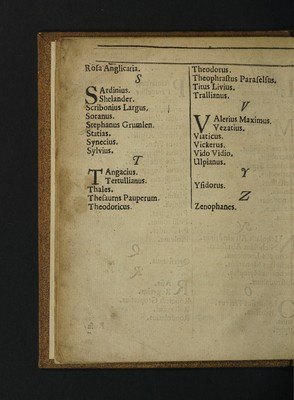 Rosa Anglicaria.
S
SArdinius.
Shelander.
Scribonius Largus.
Soranus.
Stephanus Grumlen.
Statias.
Synecius.
Sylvius.
T
TAngacius.
Tertullianus.
Thales.
Thesaurus Pauperum.
Theodoricus.
Theodorus.
Theophrastus Paraselsus.
Titus Livius.
Trallianus.
V
VAlerius Maximus.
Vezatius.
Viaticus.
Vickerus.
Vido Vidio.
Ulpianus.
Y
Ysidorus.
Z
Zenophanes.